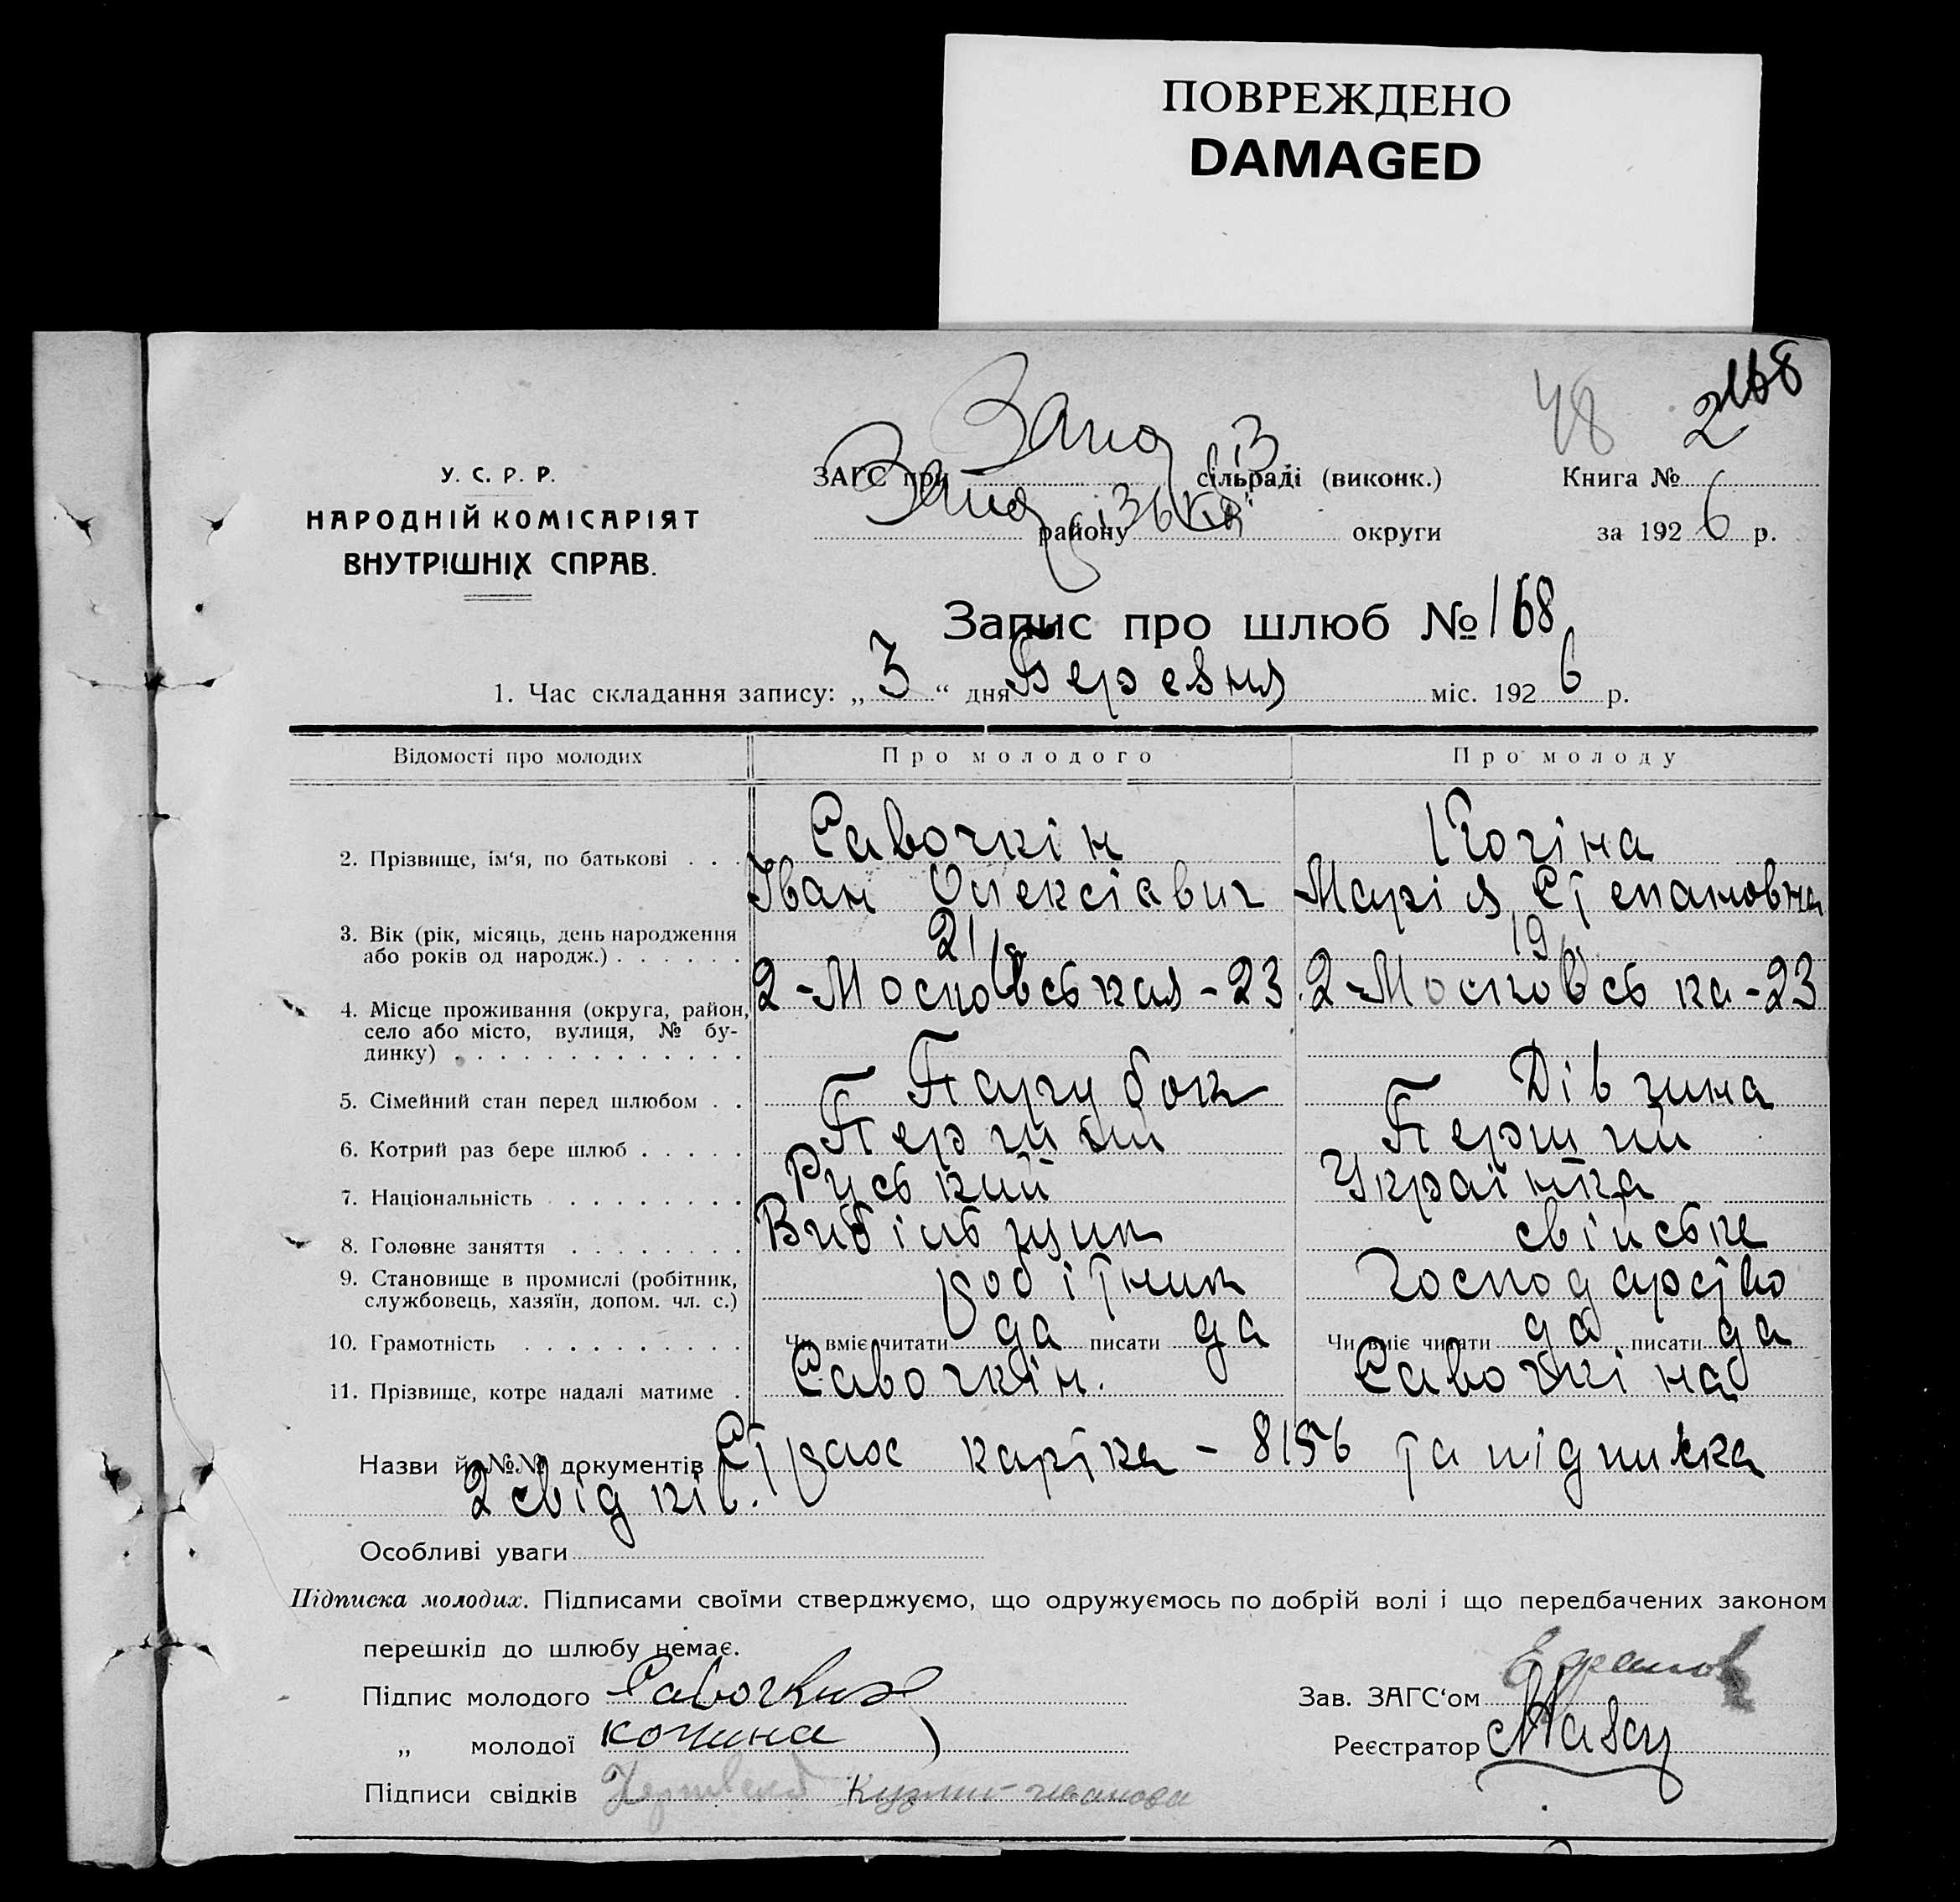 ПОВРЕЖДЕНО
DAMAGED
48
2 168
У. С. Р. Р.
НАРОДНІЙ КОМІСАРІЯТ
ВНУТРІШНІХ СПРАВ.
ЗАГС при сільраді (виконк.) Книга №
району округи за 192 6 р.
Запис про шлюб № 168
1. Час складання запису: „ 3 “ дня Березня міс. 192 6 р.
Відомості про молодих Про молодого Про молоду
2. Прізвище, ім‘я, по батькові . . . Савочкін Кочіна
Іван Олексіавич Марія Степановна
3. Вік (рік, місяць, день народження 21 19
або років од народж.) . . . . . .
2-Московськая-23 2-Московська-23
4. Місце проживання (округа, район,
село або місто, вулиця, № бу-
динку) . . . . . . . . . . . . .
5. Сімейний стан перед шлюбом . . Парубок Дівчина
6. Котрий раз бере шлюб . . . . . Перший Перший
7. Національність . . . . . . . . Руський Українка
8. Головне заняття . . . . . . . . Вибільщик свійське
9. Становище в промислі (робітник, робітник господарство
службовець, хазяїн, допом. чл. с.)
10. Грамотність . . . . . . . . . . Чи вміє читати да писати да Чи вміє читати да писати да
11. Прізвище, котре надалі матиме . Савочкін. Савочкіна
Назви й №№ документів Страх картка - 8156 та підписка
2 свідків.
Особливі уваги
Підписка молодих. Підписами своїми стверджуємо, що одружуємось по добрій волі і що передбачених законом
перешкід до шлюбу немає.
Підпис молодого Савочкин Зав. ЗАГС‘ом
„ молодої кочина Реєстратор
Підписи свідків